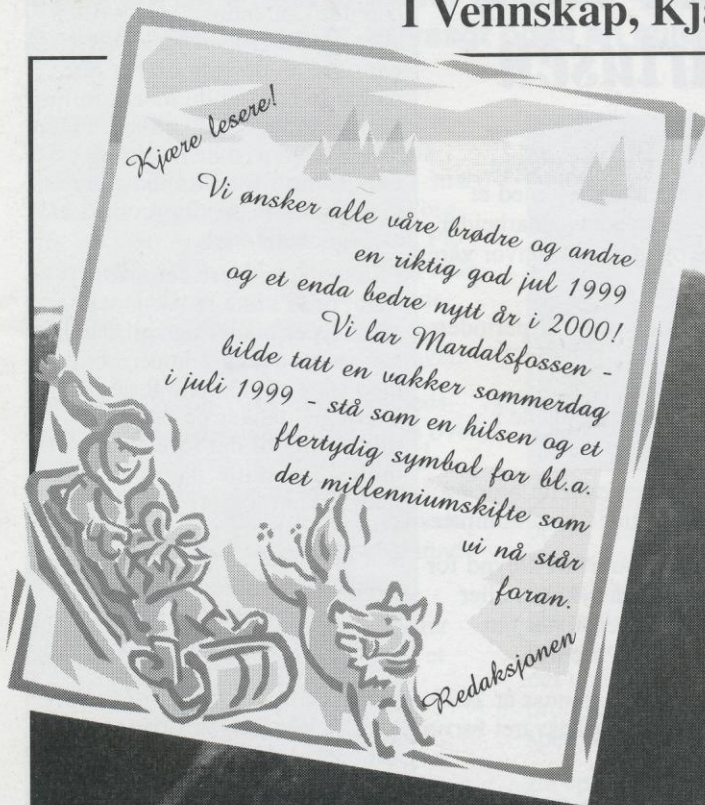 I Vennskap,
Kjære lesere!
Vi ønsker alle våre brødre og andre
en riktig god jul 1999
og et enda bedre nytt år i 2000!
Vi lar Mardalsfossen -
bilde tatt en vakker sommerdag
i juli 1999 - stå som en hilsen og et
flertydig symbol for bl.a.
det millenniumskifte som
vi nå står
foran.
Redaksjonen